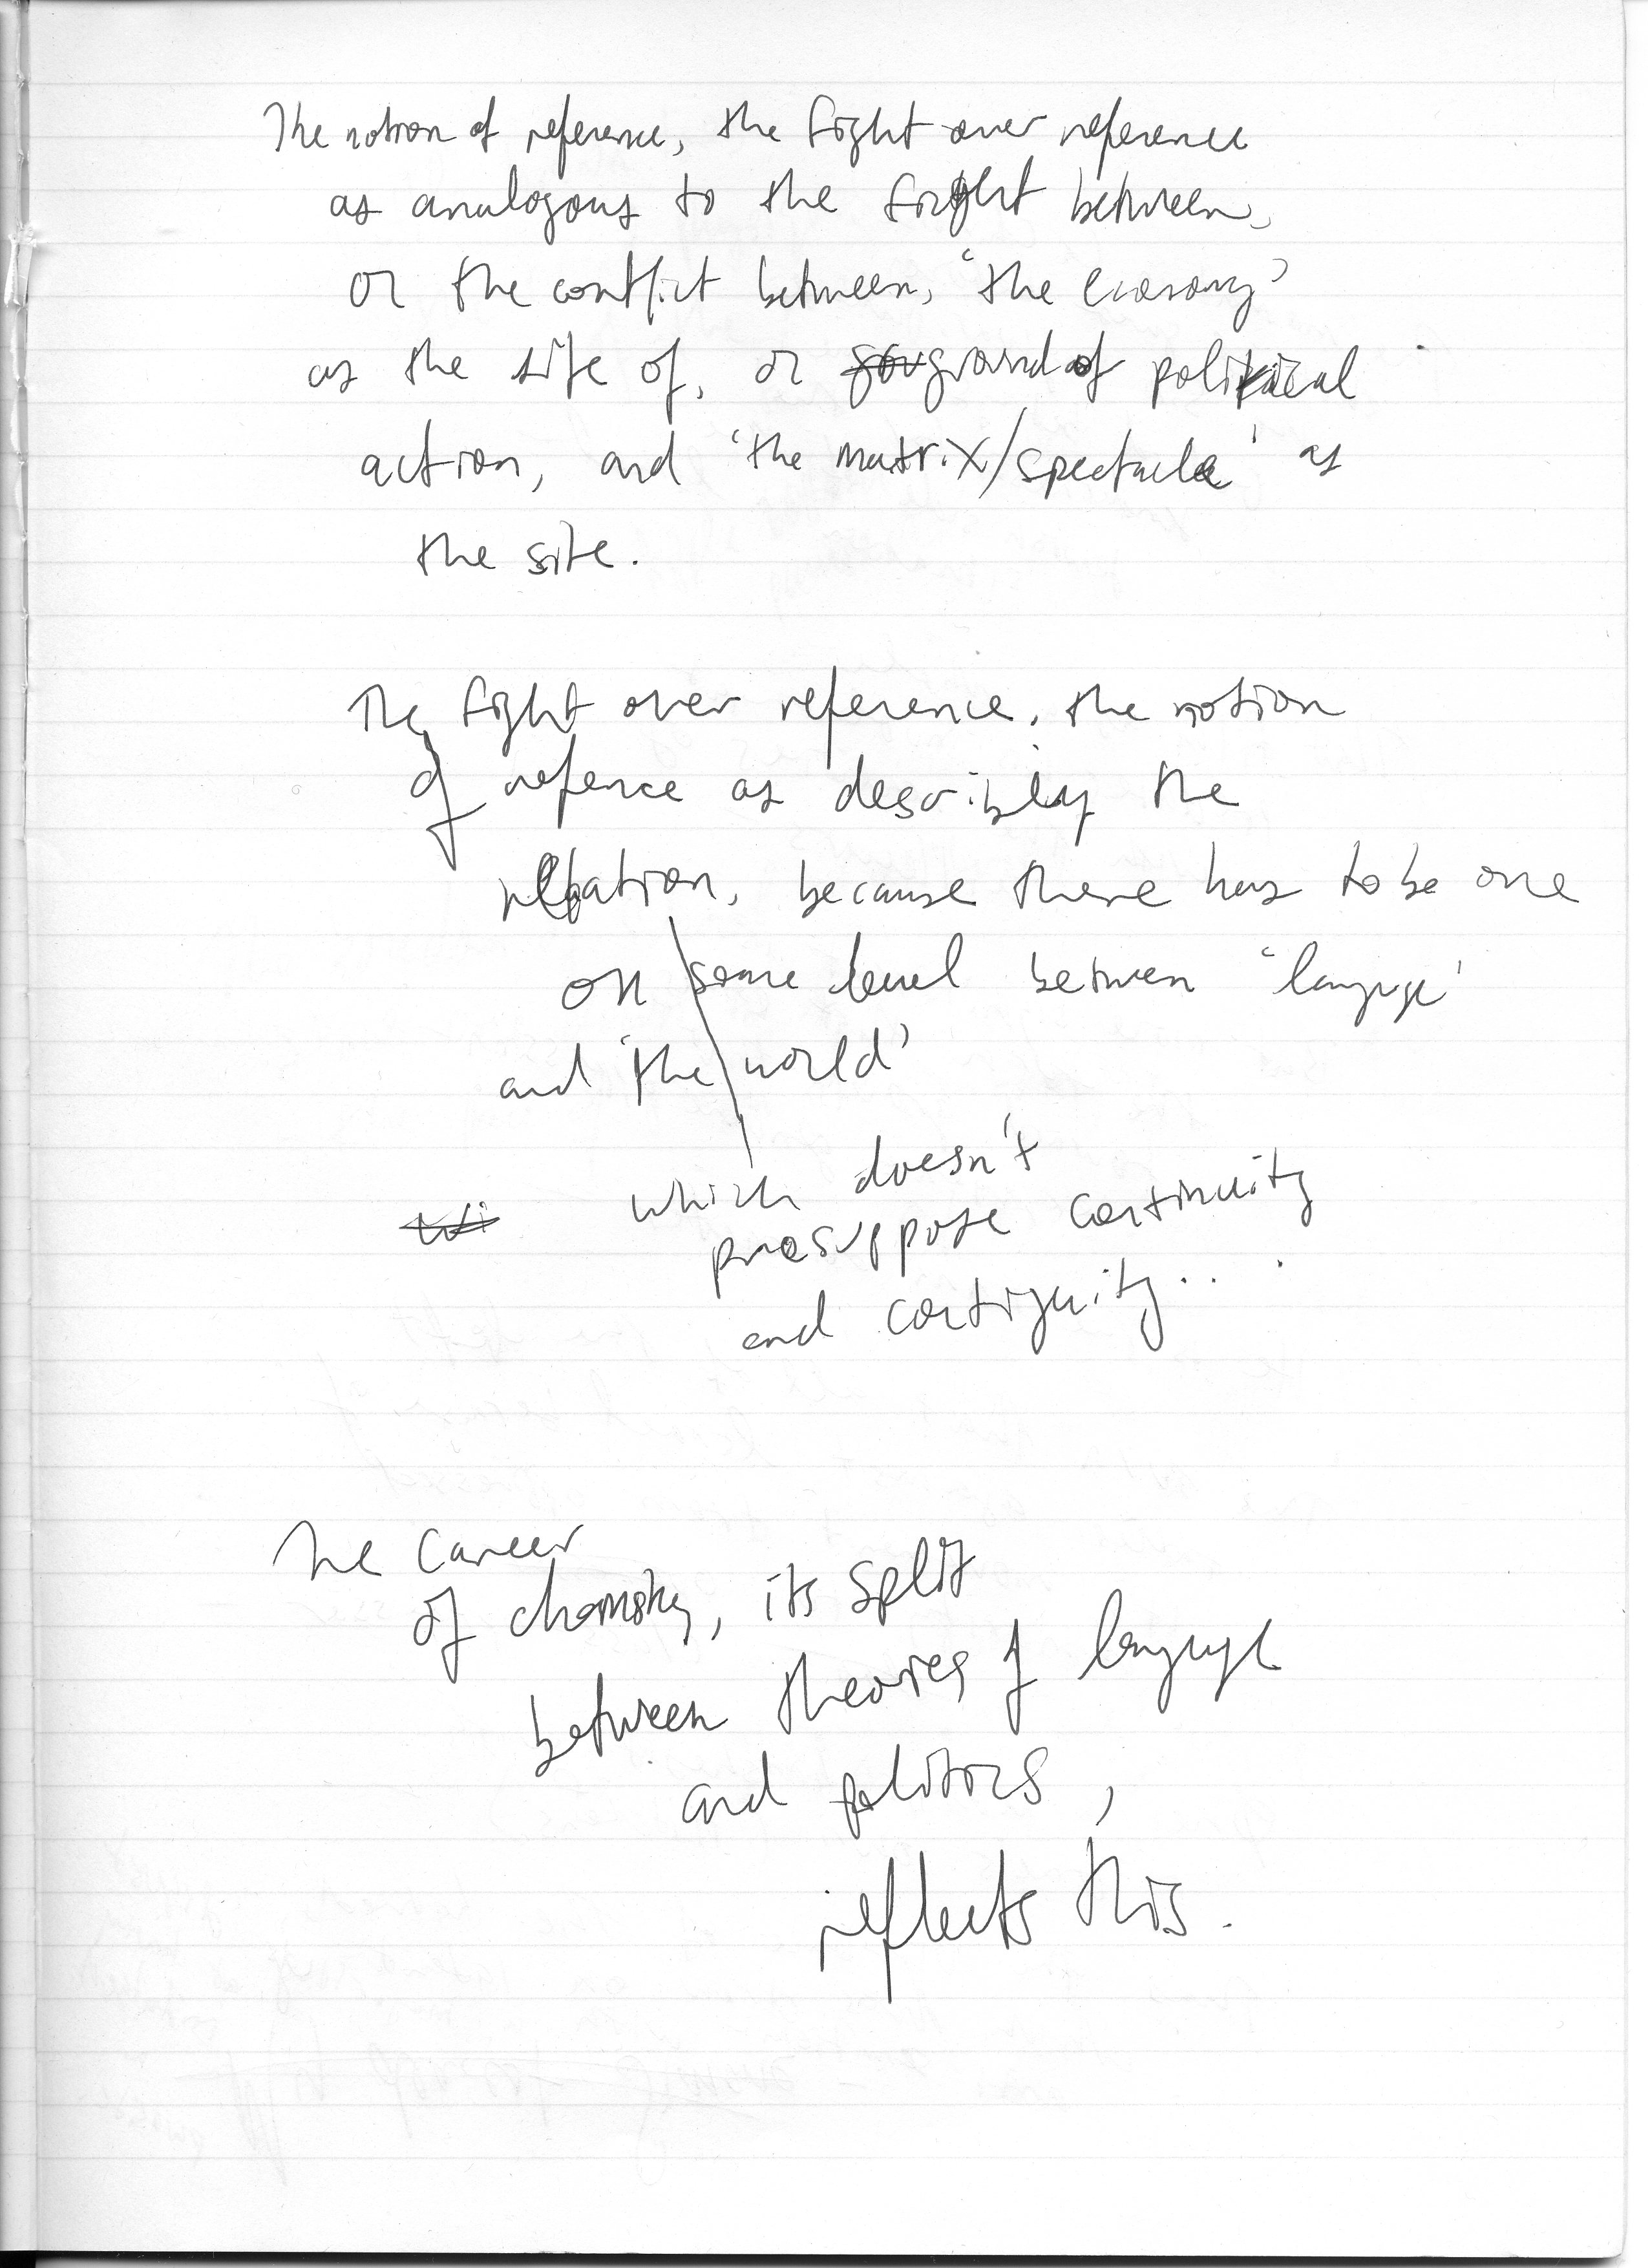 The notion of reference, the fight over reference
as analogous to the fight between,
or the conflict between, 'the economy'
as the site of, or ground of political
action, and 'the matrix/spectacle' as
the site.
The fight over reference, the notion
of refence as describing the
relation, because there has to be one
on some level between 'language'
and 'the world'
which doesn't
presuppose continuity
and contiguity...
The career
of chomsky, its split
between theories of language
and politics,
reflects this.